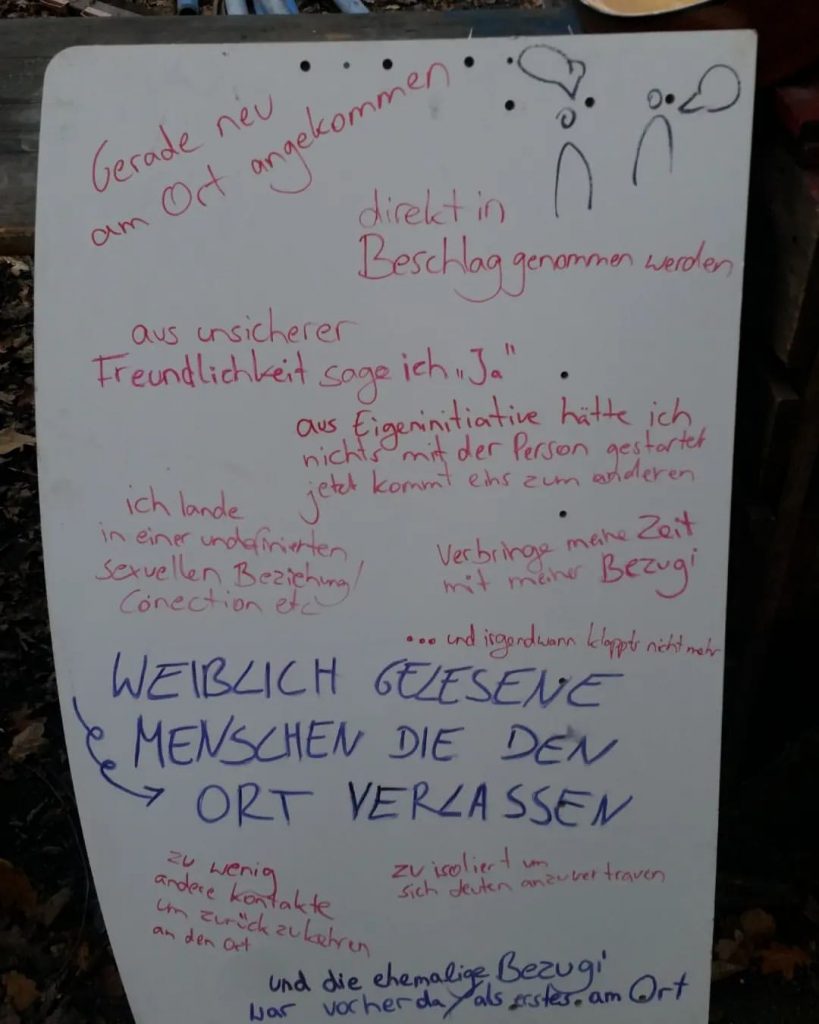 Gerade neu
am Ort angekommen
direkt in
Beschlag genommen werden
aus unsicherer
Freundlichkeit sage ich „Ja"
aus Eigeninitiative hätte ich
nichts mit der Person gestartet
jetzt kommt eins zum anderen
ich lande
in einer undefinierten
sexuellen Beziehung/
Conection etc
Verbringe meine Zeit
mit meiner Bezugi
... und irgendwann klappts nicht mehr
WEIBLICH GELESENE
MENSCHEN DIE DEN
ORT VERLASSEN
zu wenig
andere kontakte
um zurück zu kehren
an den Ort
zu isoliert um
sich leuten anzuvertrauen
und die ehemalige Bezugi
war vorher da/als erstes am Ort